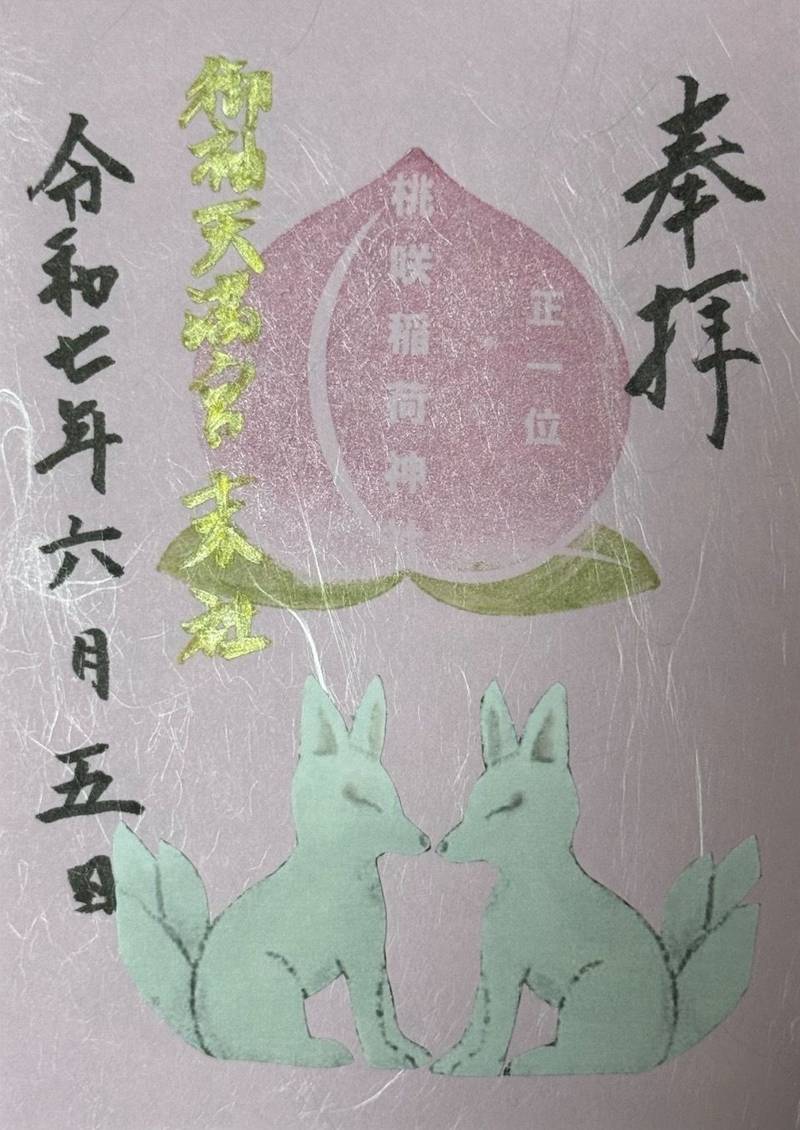 奉拝
正一位
桃咲稲荷神社
御袖天満宮 末社
令和七年六月五日